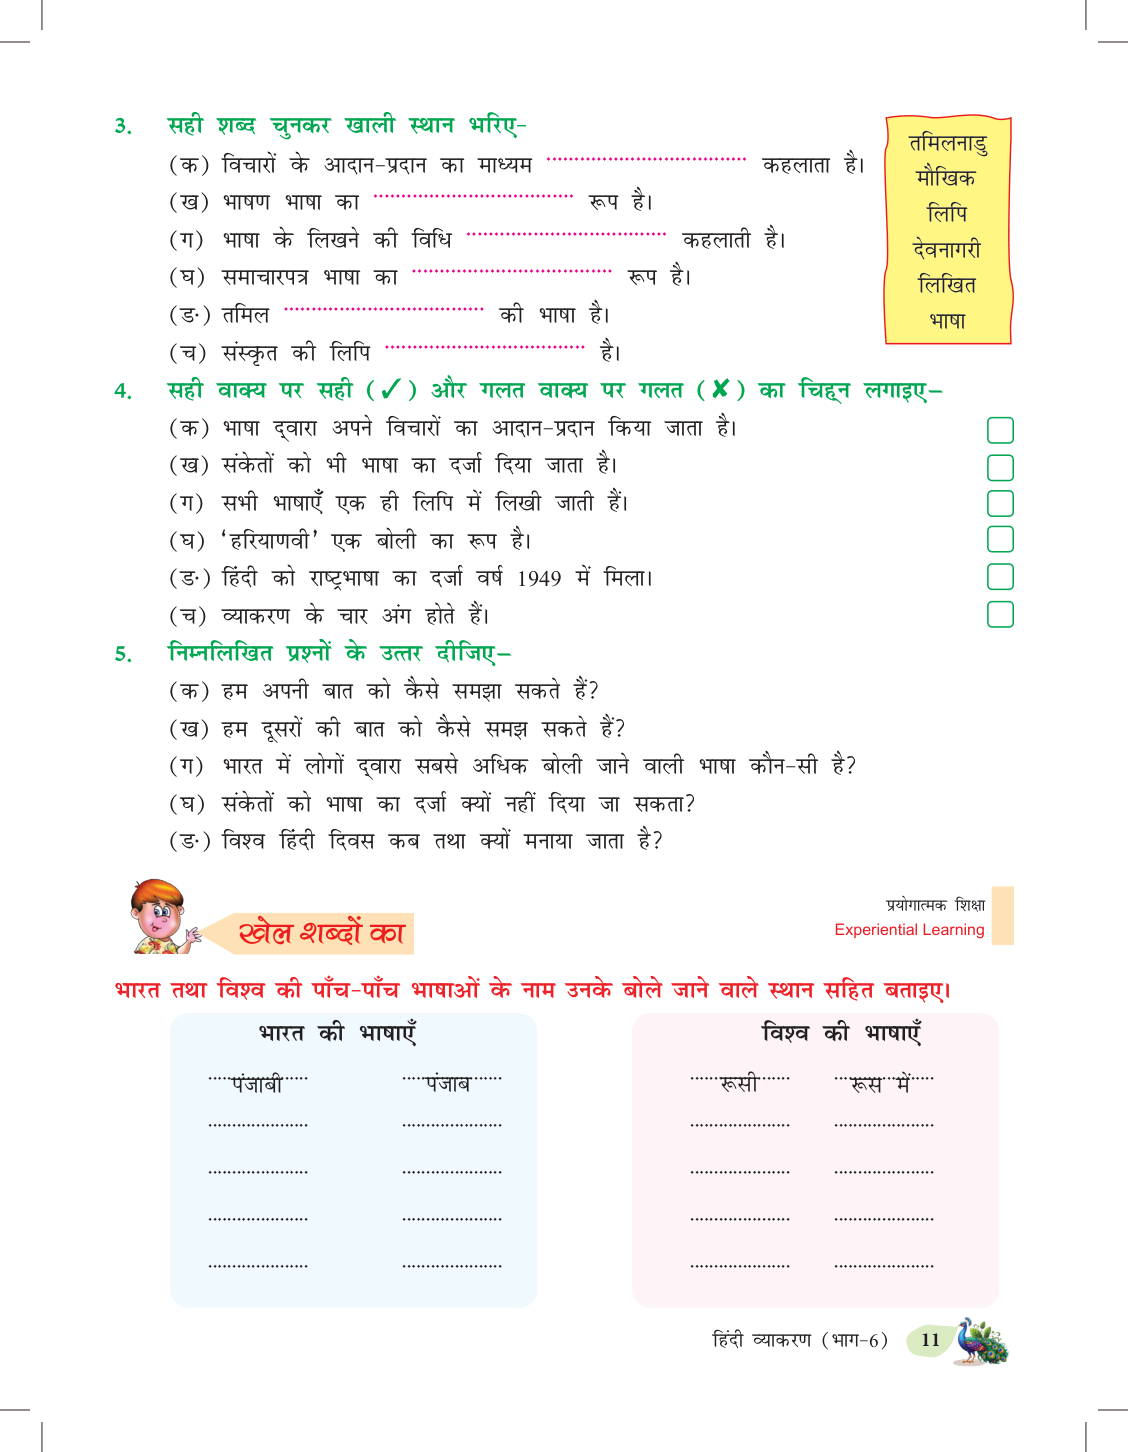 3. सही शब्द चुनकर खाली स्थान भरिए-
(क) विचारों के आदान-प्रदान का माध्यम .................................... कहलाता है।
(ख) भाषण भाषा का .................................... रूप है।
(ग) भाषा के लिखने की विधि .................................... कहलाती है।
(घ) समाचारपत्र भाषा का .................................... रूप है।
(ङ) तमिल .................................... की भाषा है।
(च) संस्कृत की लिपि .................................... है।
तमिलनाडु
मौखिक
लिपि
देवनागरी
लिखित
भाषा
4. सही वाक्य पर सही (✓) और गलत वाक्य पर गलत (✘) का चिह्न लगाइए–
(क) भाषा द्वारा अपने विचारों का आदान-प्रदान किया जाता है।
(ख) संकेतों को भी भाषा का दर्जा दिया जाता है।
(ग) सभी भाषाएँ एक ही लिपि में लिखी जाती हैं।
(घ) ‘हरियाणवी’ एक बोली का रूप है।
(ङ) हिंदी को राष्ट्रभाषा का दर्जा वर्ष 1949 में मिला।
(च) व्याकरण के चार अंग होते हैं।
5. निम्नलिखित प्रश्नों के उत्तर दीजिए–
(क) हम अपनी बात को कैसे समझा सकते हैं?
(ख) हम दूसरों की बात को कैसे समझ सकते हैं?
(ग) भारत में लोगों द्वारा सबसे अधिक बोली जाने वाली भाषा कौन-सी है?
(घ) संकेतों को भाषा का दर्जा क्यों नहीं दिया जा सकता?
(ङ) विश्व हिंदी दिवस कब तथा क्यों मनाया जाता है?
खेल शब्दों का
प्रयोगात्मक शिक्षा
Experiential Learning
भारत तथा विश्व की पाँच-पाँच भाषाओं के नाम उनके बोले जाने वाले स्थान सहित बताइए।
भारत की भाषाएँ
पंजाबी पंजाब
..................... .....................
..................... .....................
..................... .....................
..................... .....................
विश्व की भाषाएँ
रूसी रूस में
..................... .....................
..................... .....................
..................... .....................
..................... .....................
हिंदी व्याकरण (भाग-6) 11